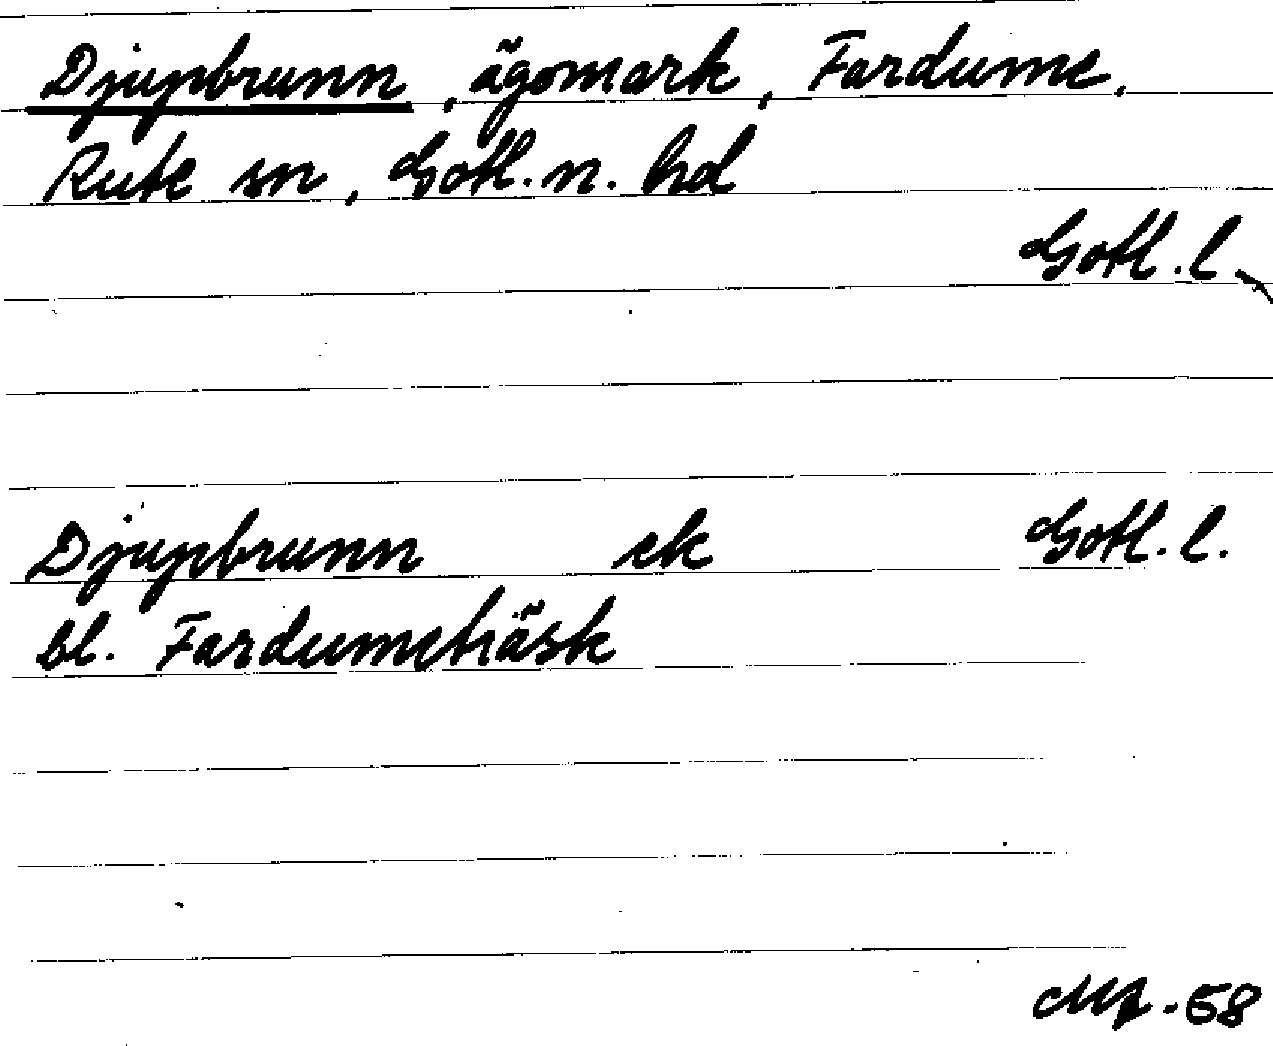 Djupbrunn, ägomark, Fardume,
Rute sn, Gotl. n. hd
Gotl. l.
Djupbrunn ek Gotl. l.
bl. Fardumeträsk
58